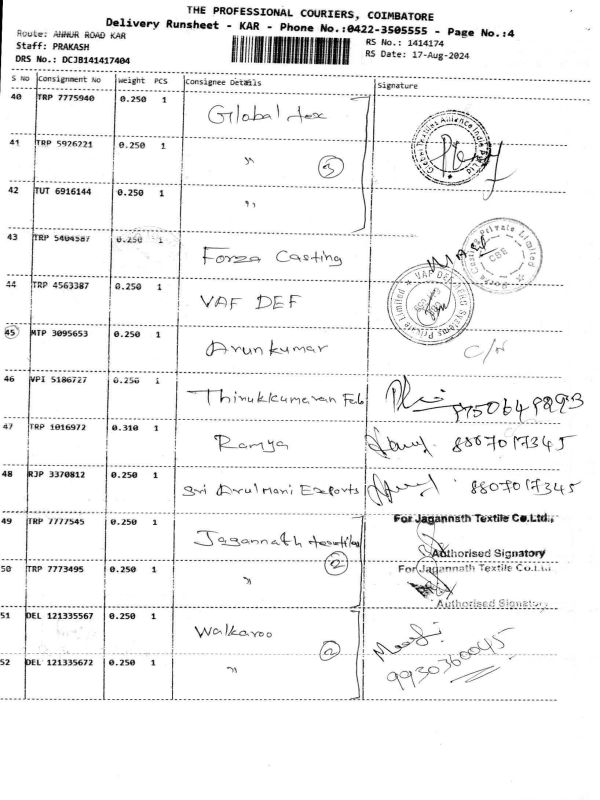 THE PROFESSIONAL COURIERS, COIMBATORE
Delivery Runsheet - KAR - Phone No.:0422-3505555 - Page No.:4
Route: ANNUR ROAD KAR
Staff: PRAKASH
DRS No.: DCJB141417404
RS No.: 1414174
RS Date: 17-Aug-2024
S No Consignment No Weight PCS Consignee Details Signature
40 TRP 7775940 0.250 1 Global tex
41 TRP 5926221 0.250 1 " 3
42 TUT 6916144 0.250 1 "
43 TRP 5404587 0.250 1 Forza Casting
44 TRP 4563387 0.250 1 VAF DEF
45 MTP 3095653 0.250 1 Arunkumar C/N
46 VPI 5186727 0.250 1 Thirukkumaran Fab
47 TRP 1016972 0.310 1 Ramya 8807017345
48 RJP 3370812 0.250 1 Sri Arulmani Exports 8807017345
49 TRP 7777545 0.250 1 Jagannath For Jagannath Textile Co.Ltd.,
Authorised Signatory
50 TRP 7773495 0.250 1 " 2 For Jagannath Textile Co.Ltd.
Authorised Signatory
51 DEL 121335567 0.250 1 Walkaroo
52 DEL 121335672 0.250 1 " 2 9930360045